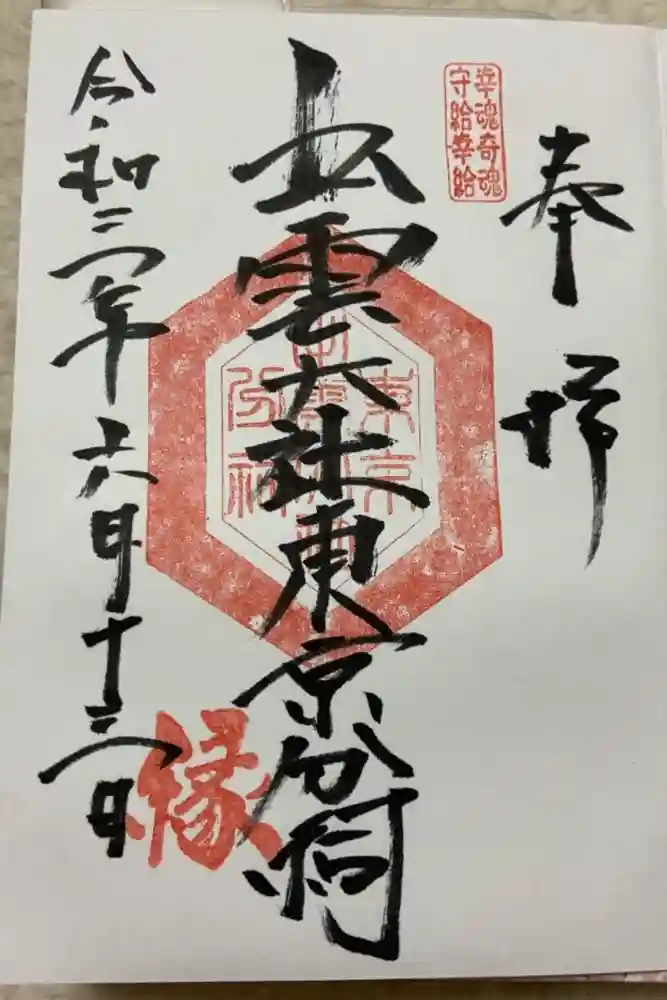 奉拝
幸魂奇魂
守給幸給
出雲大社東京分祠
東京
分祠
令和三年六月十三日
縁